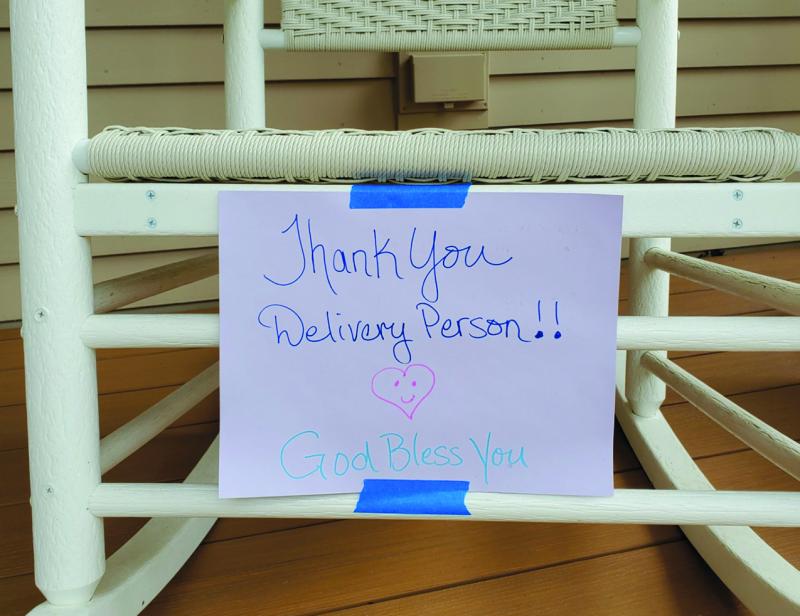 Thank You
Delivery Person!!
God Bless You